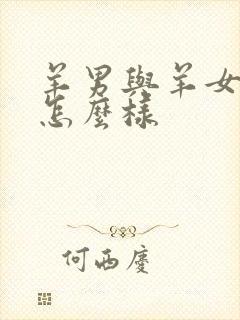 羊男與羊女
怎麼樣
何西慶